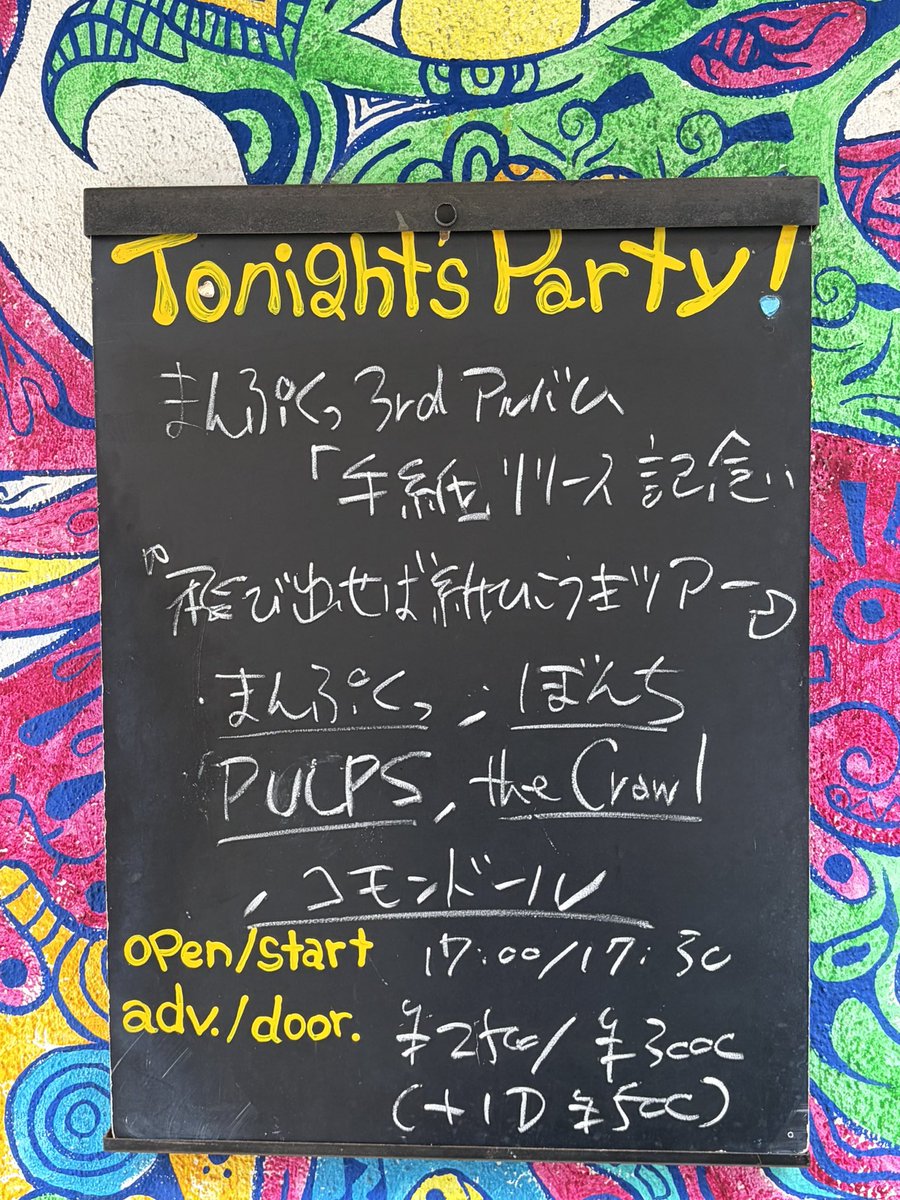 Tonight's Party!
まんぷくっ 3rd アルバム
「手紙」リリース 記念
『飛び出せば紙ひこうきツアー』
・まんぷくっ , ぼんち
PUCPS, the Crowl
, コモンドール
open/start 17:00/17:30
adv./door. ¥2500/¥3000
(+1D ¥500)